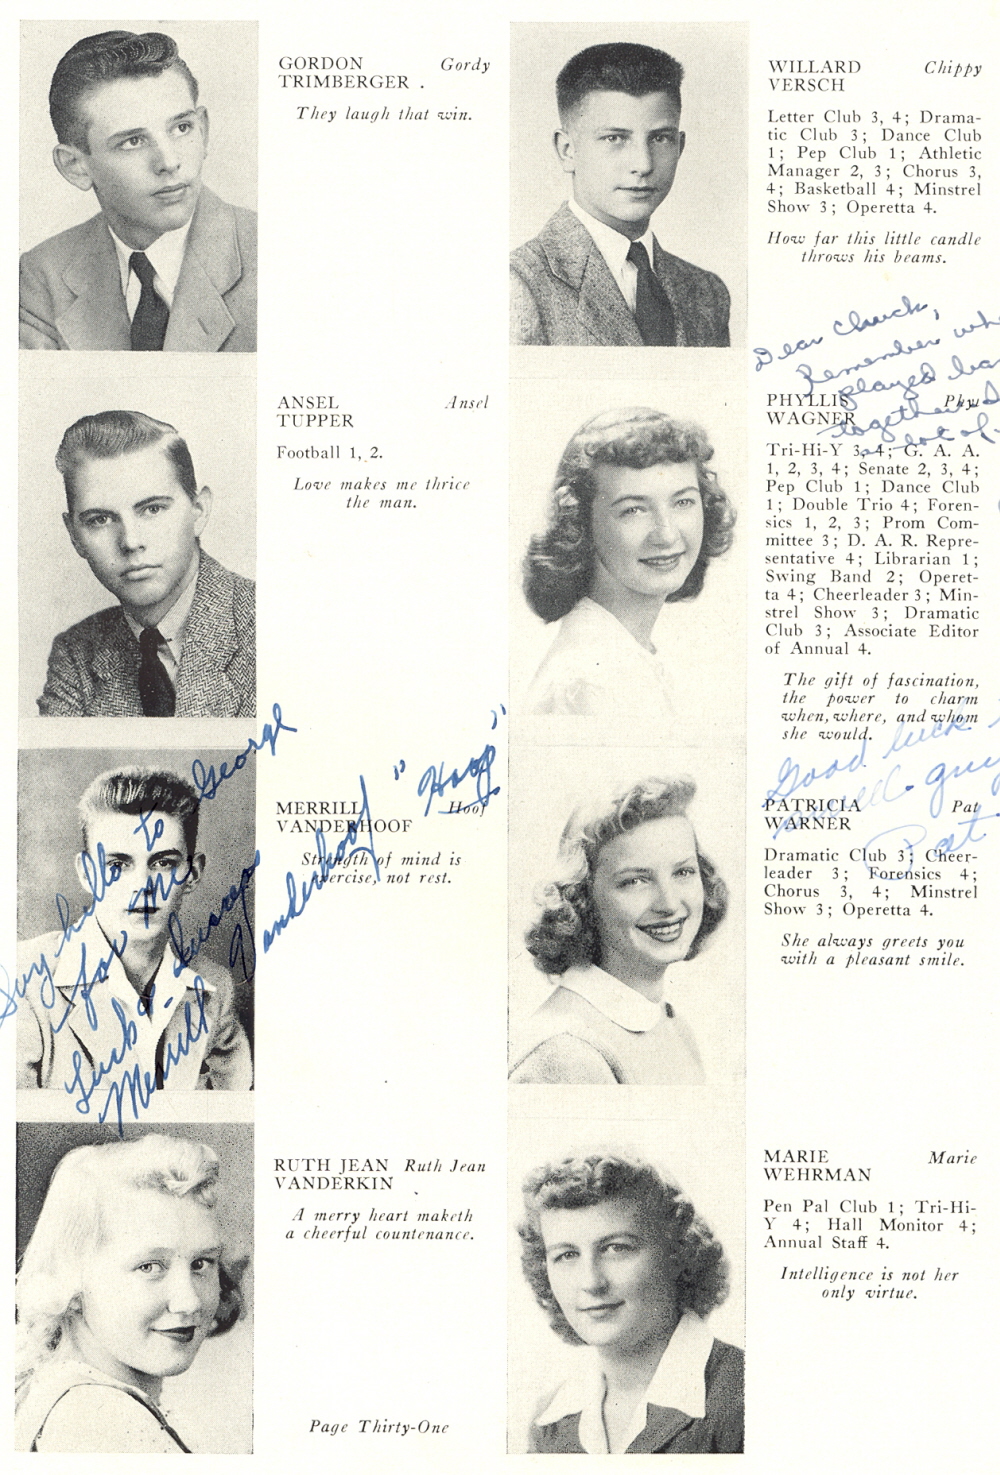 GORDON Gordy
TRIMBERGER .
They laugh that win.
ANSEL Ansel
TUPPER
Football 1, 2.
Love makes me thrice
the man.
MERRILL Hoof
VANDERHOOF
Strength of mind is
exercise, not rest.
Say hello to George
for me
Luck
Merrill Vanderhoof "Hoof"
RUTH JEAN Ruth Jean
VANDERKIN
A merry heart maketh
a cheerful countenance.
Page Thirty-One
WILLARD Chippy
VERSCH
Letter Club 3, 4; Drama-
tic Club 3; Dance Club
1; Pep Club 1; Athletic
Manager 2, 3; Chorus 3,
4; Basketball 4; Minstrel
Show 3; Operetta 4.
How far this little candle
throws his beams.
Dear Chuck,
Remember
played
together
lot of
PHYLLIS
WAGNER
Tri-Hi-Y 3, 4; G. A. A.
1, 2, 3, 4; Senate 2, 3, 4;
Pep Club 1; Dance Club
1; Double Trio 4; Foren-
sics 1, 2, 3; Prom Com-
mittee 3; D. A. R. Repre-
sentative 4; Librarian 1;
Swing Band 2; Operet-
ta 4; Cheerleader 3; Min-
strel Show 3; Dramatic
Club 3; Associate Editor
of Annual 4.
The gift of fascination,
the power to charm
when, where, and whom
she would.
Good luck
swell guy
Pat
PATRICIA Pat
WARNER
Dramatic Club 3; Cheer-
leader 3; Forensics 4;
Chorus 3, 4; Minstrel
Show 3; Operetta 4.
She always greets you
with a pleasant smile.
MARIE Marie
WEHRMAN
Pen Pal Club 1; Tri-Hi-
Y 4; Hall Monitor 4;
Annual Staff 4.
Intelligence is not her
only virtue.